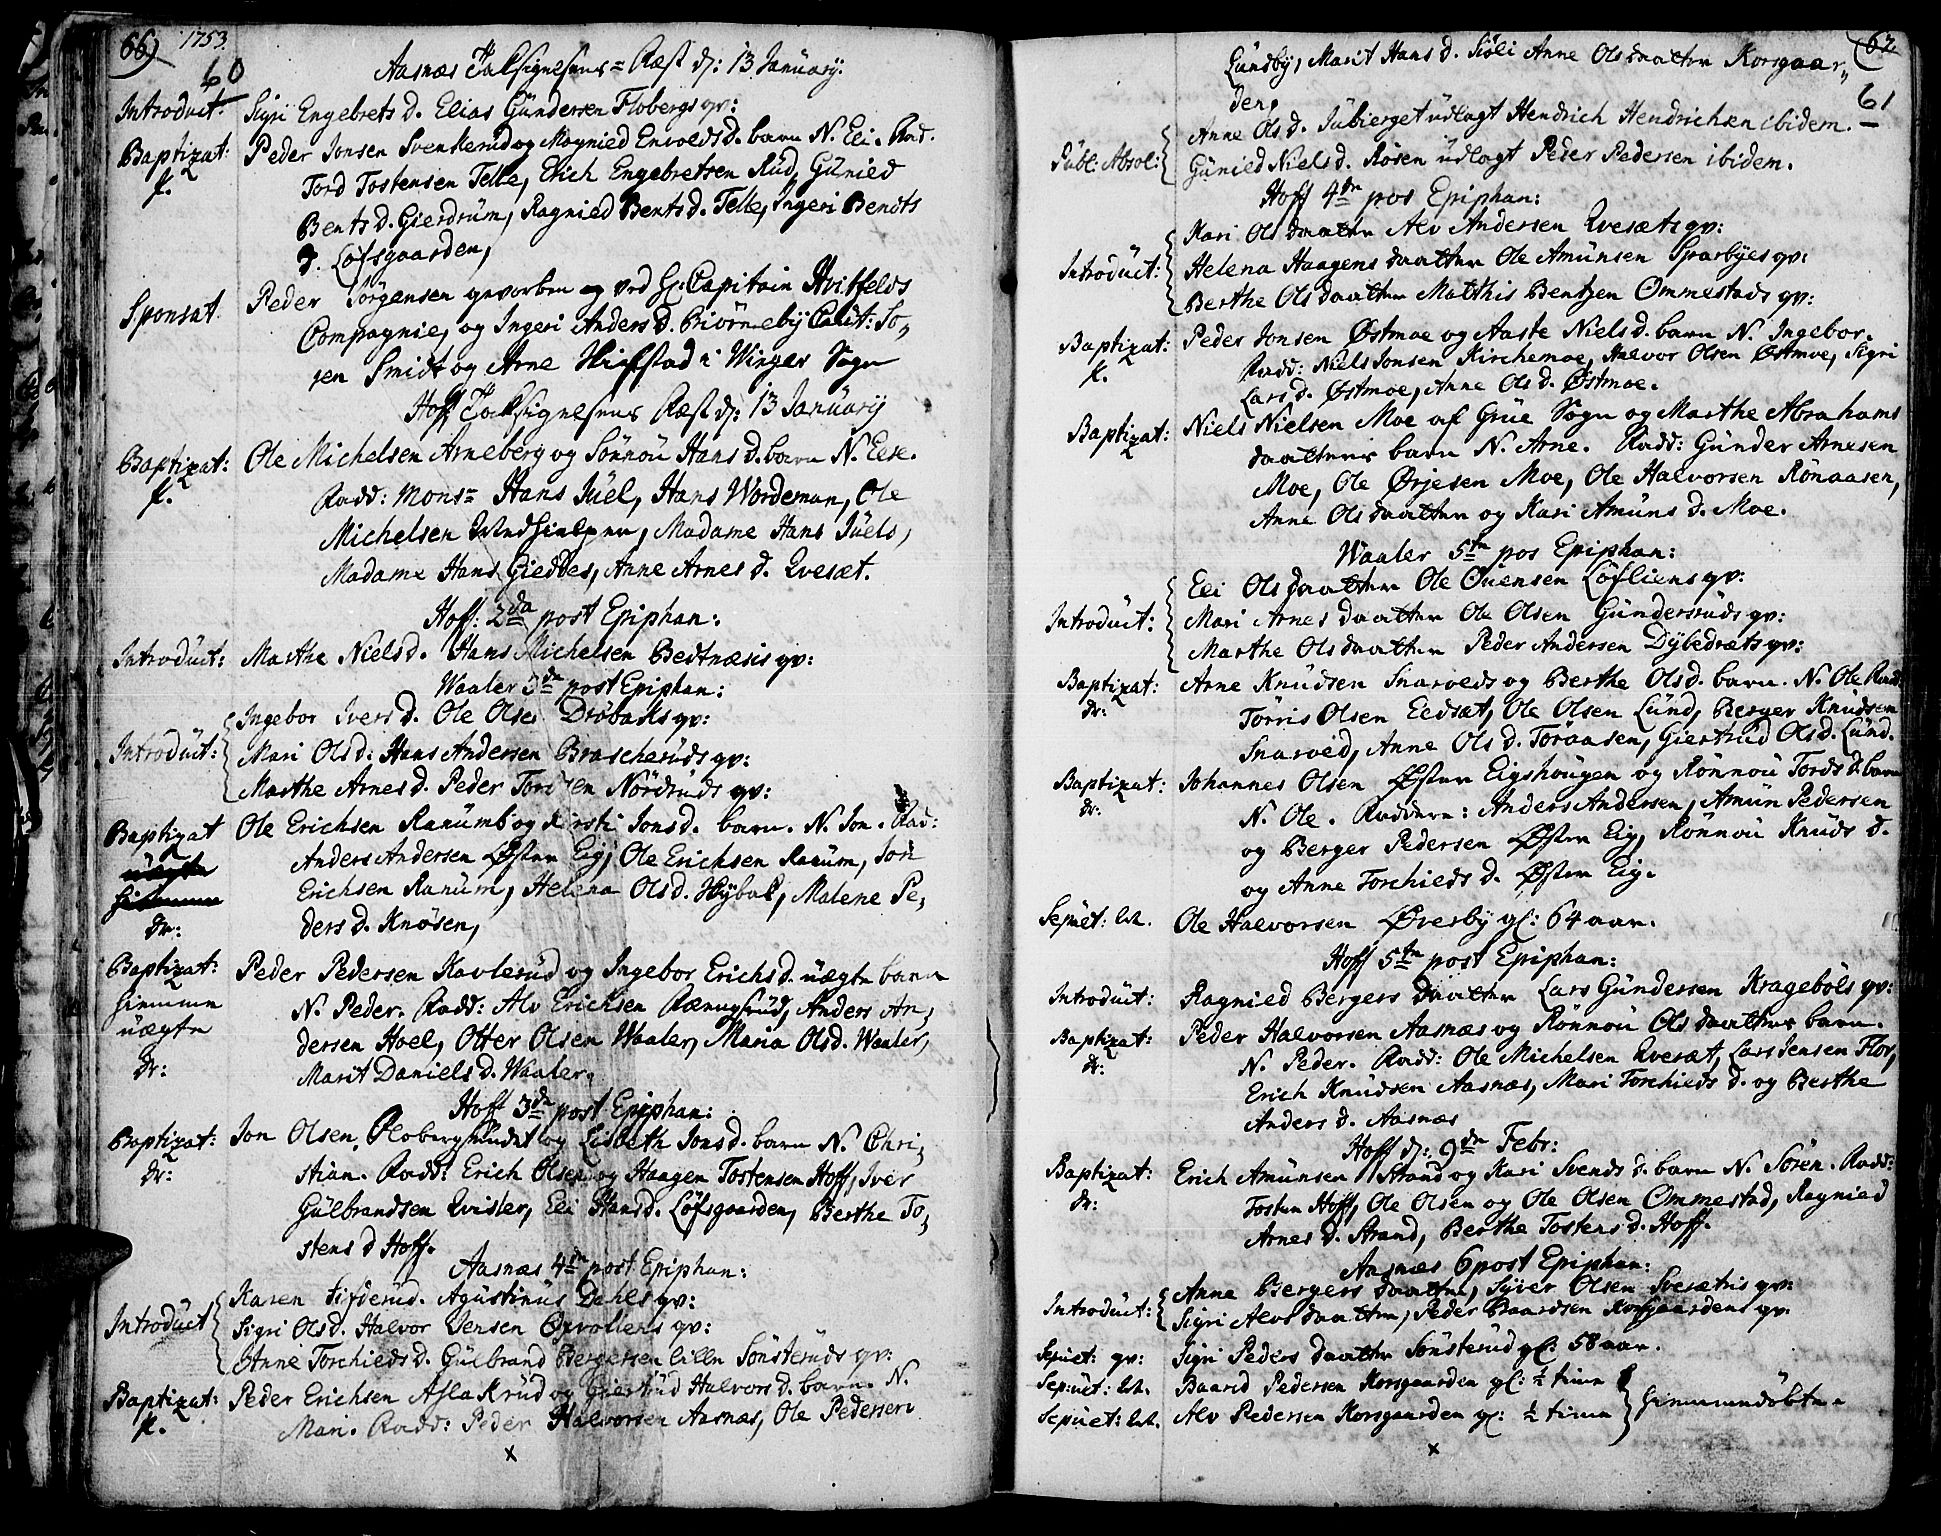 66) 1753.
60
Aasnæs Taksigelsens= Fæst d: 13 January.
Introduct. Sigri Engebrets d. Elias Gündersen Flobergs qv:
Baptizat: Peder Jonsen Svenkerud og Magnied Envolds d. barn N. Eli. Fad.
f. Tord Tostensen Telle, Erich Engebretsen Rüd, Günied
Bents d. Gierdrüm, Ragnied Bents d. Telle, Ingeri Bents
d. Löfsgaarden,
Sponsat. Peder Jörgensen gevorben og ved H: Capitain Hvitfelds
Compagnie, og Ingeri Anders d. Biörneby Calit: Jo,
gen Smidt og Arne in Winger Sogn
Hoff Taksigelsens Fæst d: 13 January
Baptizat: Ole Michelsen Arneberg og Sönnou Hans d. barn N. Else.
f. Fadd: Mons= Hans Jüel, Hans Wordeman, Ole
Michelsen Madame Hans Jüels,
Madame Hans Giedbes, Anne Arnes d. Qvesæt.
Hoff: 2da post Epiphan:
Introdüct: Marthe Niels d. Hans Michelsen Bedtnæsis qv:
Waaler 3de post Epiphan:
Ingebor Ivers d. Ole Olsen Dröbaks qv:
Introdüct: Mari Ols d: Hans Andersen Brascherüds qv:
Marthe Arnes d. Peder Tordsen Nördrüds qv:
Baptizat Ole Erichsen Ranümb og Kirsti Jons d. barn. N. Jon. Fad:
uægte Anders Andersen Østen Eig, Ole Erichsen Ranüm, Jon
hiemme Erichsen Ranüm, Helena Ols d. Hÿbak, Malene Pe,
dr: ders d. Knösen,
Baptizat: Peder Pedersen Kavlerüd og Ingebor Erichs d. uægte barn
hiemme N. Peder. Fadd: Alv Erichsen Anders An,
uægte dersen Hoel, Otter Olsen Waaler, Maria Ols d. Waaler,
dr: Marit Daniels d. Waaler.
Hoff 3de post Epiphan:
Baptizat: Jon Olsen Flobergshindet og Lisbeth Jons d. barn N. Chri,
dr: stian. Fadd: Erich Olsen og Haagen Tostensen Hoff, Iver
Gülbrandsen Qvisler, Eli Hans d. Löfsgaarden, Berthe To,
stens d Hoff.
Aasnæs 4de post Epiphan:
Karen Agüstinüs Dahls qv:
Introdüct Sigri Ols d. Halvor Jensen Opvollens qv:
Anne Torchields d. Gülbrand Bergersen lille Sönsterüds qv:
Baptizat: Peder Erichsen Aslakrüd og Giertrüd Halvors d. barn. N.
f. Mari. Fadd: Peder Halvorsen Aasnæs, Ole Pedersen
x
(62
61
Lundby, Marit Hans d. Siöli Anne Olsdaatter Korsgaar,,
den,
Anne Ols d. Jübierget udlagt Hendrich Hendrichsen ibidem.
Pübl: Absol: Günied Niels d. Rosen üdlagt Peder Pedersen ibidem.
Hoff 4de pos Epiphan:
Kari Olsdaatter Alv Andersen Qvesæts qv:
Introdüct: Helena Haagens daatter Ole Amünsen Sparbyes qv:
Berthe Olsdaatter Matthis Bentzen Ommestads qv:
Baptizat: Peder Jonsen Østmoe og Aaste Niels d. barn N. Ingebor.
f. Fadd: Niels Jonsen Kirchemoe, Halvor Olsen Østmoe, Sigri
Lars d. Østmoe, Anne Ols d. Østmoe.
Baptizat: Niels Nielsen Moe af Grüe Sogn og Marthe Abrahams
daatters barn N. Arne. Fadd: Günder Arnesen
Moe, Ole Ørjesen Moe, Ole Halvorsen Rönaasen,
Anne Olsdaatter og Kari Amüns d. Moe.
Waaler 5te pos Epiphan:
Eli Olsdaatter Ole Ouensen Löfliens qv:
Introdüct: Mari Arnesdaatter Ole Olsen Gündersrüds qv:
Marthe Olsdaatter Peder Andersen Dybedræts qv:
Baptizat: Arne Knüdsen Snarveds og Berthe Ols d. barn. N. Ole Fad:
dr: Törris Olsen Eedsæt, Ole Olsen Lünd, Berger Knüdsen
Snarved, Anne Ols d. Toraasen, Giertrüd Ols d. Lünd.
Baptizat: Johannes Olsen Østen Eigshougen og Rönnoü Tords d. barn
dr: N. Ole. Faddere: Anders Andersen, Amün Pedersen
og Berger Pedersen Østen Eig, Rönnoü Knüds d.
og Anne Torchields d. Østen Eig.
Sepüet: Ole Halvorsen Øverby gl: 64 aar.
Hoff 5te post Epiphan:
Introdüct: Ragnied Bergers daatter Lars Gündersen Krageböls qv:
Baptizat: Peder Halvorsen Aasnæs og Rönnoü Olsdaatters barn.
dr: N. Peder. Fadd: Ole Michelsen Qvesæt, Lars Jensen Flor,
Erich Knudsen Aasnæs, Mari Torchields d. og Berthe
Anders d. Aasnæs
Hoff d: 9de Febr:
Baptizat: Erich Amünsen Strand og Kari Svends d. barn N. Sören. Fadd:
dr: Tosten Hoff, Ole Olsen og Ole Olsen Ommestad, Ragnied
Arnes d. Strand, Berthe Tostens d. Hoff.
Aasnæs 6 post Epiphan:
Anne Bergers daatter, Syver Olsen Svesætris qv:
Introdüct: Sigri Alvs daatter, Peder Baardsen Korsgaardens qv.
Sepüet: qv: Sigri Peders daatter Sönsterüd gl: 58 aar.
Sepüet: Baard Pedersen Korsgaarden gl: ½ time
Sepüet: Alv Pedersen Korsgaarden gl: ½ time } hiemmedöbte.
x